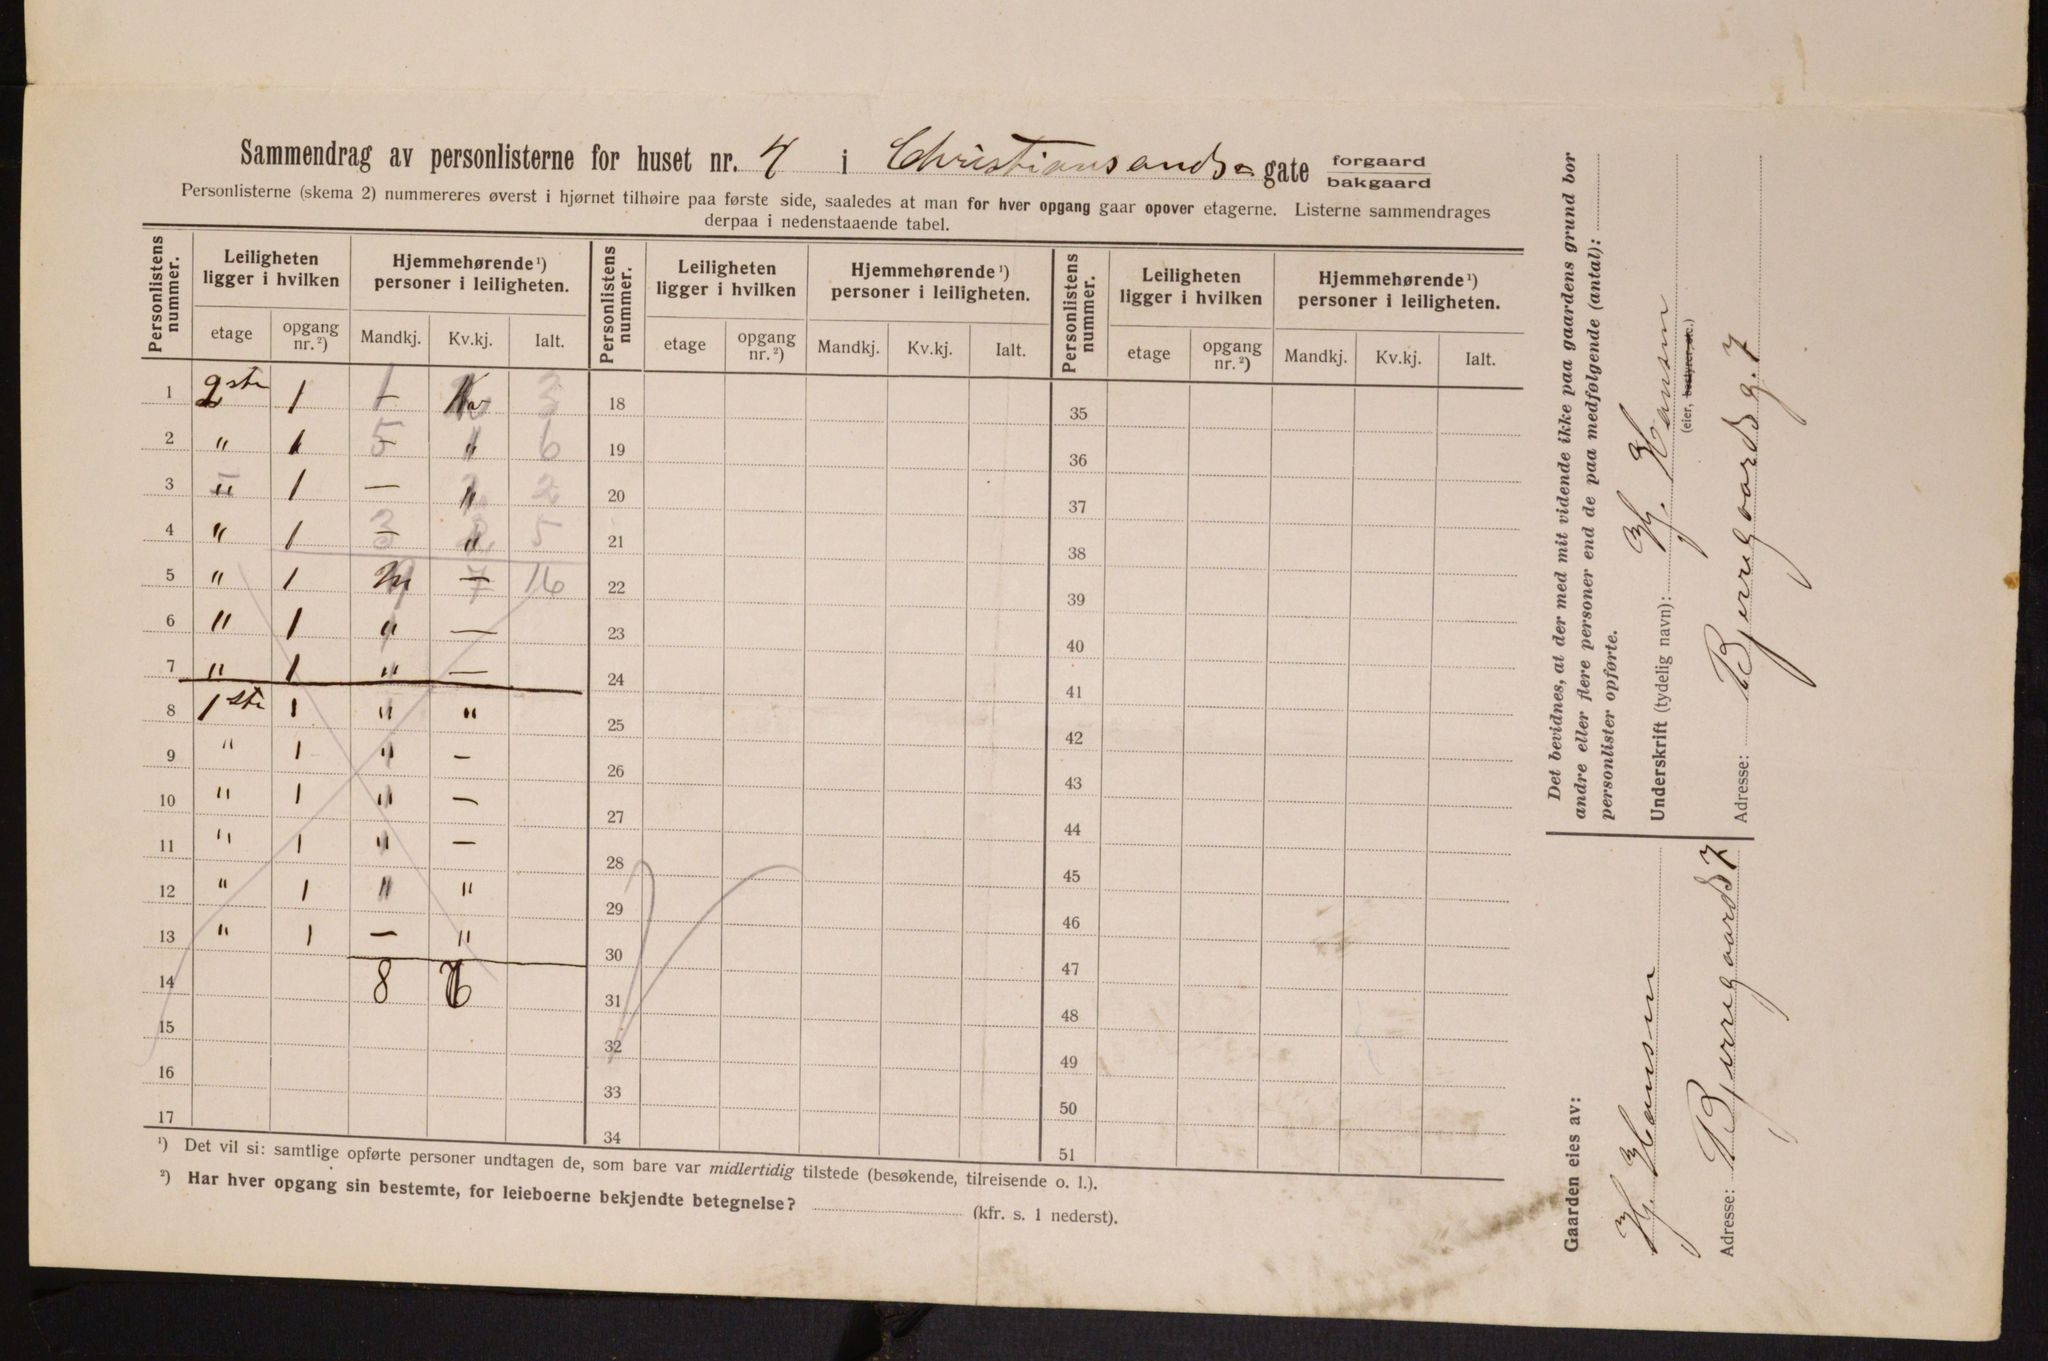 Sammendrag av personlisterne for huset nr. 4 i Christiansands gate forgaard bakgaard
Personlisterne (skema 2) nummereres øverst i hjørnet tilhøire paa første side, saaledes at man for hver opgang gaar opover etagerne. Listerne sammendrages
derpaa i nedenstaaende tabel.
Personlistens nummer. Leiligheten ligger i hvilken Hjemmehørende ¹) personer i leiligheten. Personlistens nummer. Leiligheten ligger i hvilken Hjemmehørende ¹) personer i leiligheten. Personlistens nummer. Leiligheten ligger i hvilken Hjemmehørende ¹) personer i leiligheten.
etage opgang nr. ²) Mandkj. Kv.kj. Ialt. etage opgang nr. ²) Mandkj. Kv.kj. Ialt. etage opgang nr. ²) Mandkj. Kv.kj. Ialt.
1 2 ste 1 1 – 3 18 35
2 " 1 5 – " 6 19 36
3 " 1 — " 2 20 37
4 " 1 3 – " 5 21 38
5 " 1 7 — 16 22 39
6 " 1 " — 23 40
7 " 1 " — 24 41
8 1 ste 1 " " 25 42
9 " 1 " – 26 43
10 " 1 " – 27 44
11 " 1 " – 28 45
12 " 1 " " 29 46
13 " 1 – " 30 47
14 8 6 31 48
15 32 49
16 33 50
17 34 51
¹) Det vil si: samtlige opførte personer undtagen de, som bare var midlertidig tilstede (besøkende, tilreisende o. l.).
²) Har hver opgang sin bestemte, for leieboerne bekjendte betegnelse? (kfr. s. 1 nederst).
Det bevidnes, at der med mit vidende ikke paa gaardens grund bor
andre eller flere personer end de paa medfølgende (antal):
personlister opførte.
Underskrift (tydelig navn): H. Hansen
(eier, bestyrer, etc.)
Adresse: Bjerregaards g. 7
Gaarden eies av:
H. Hansen
Adresse: Bjerregaards 7